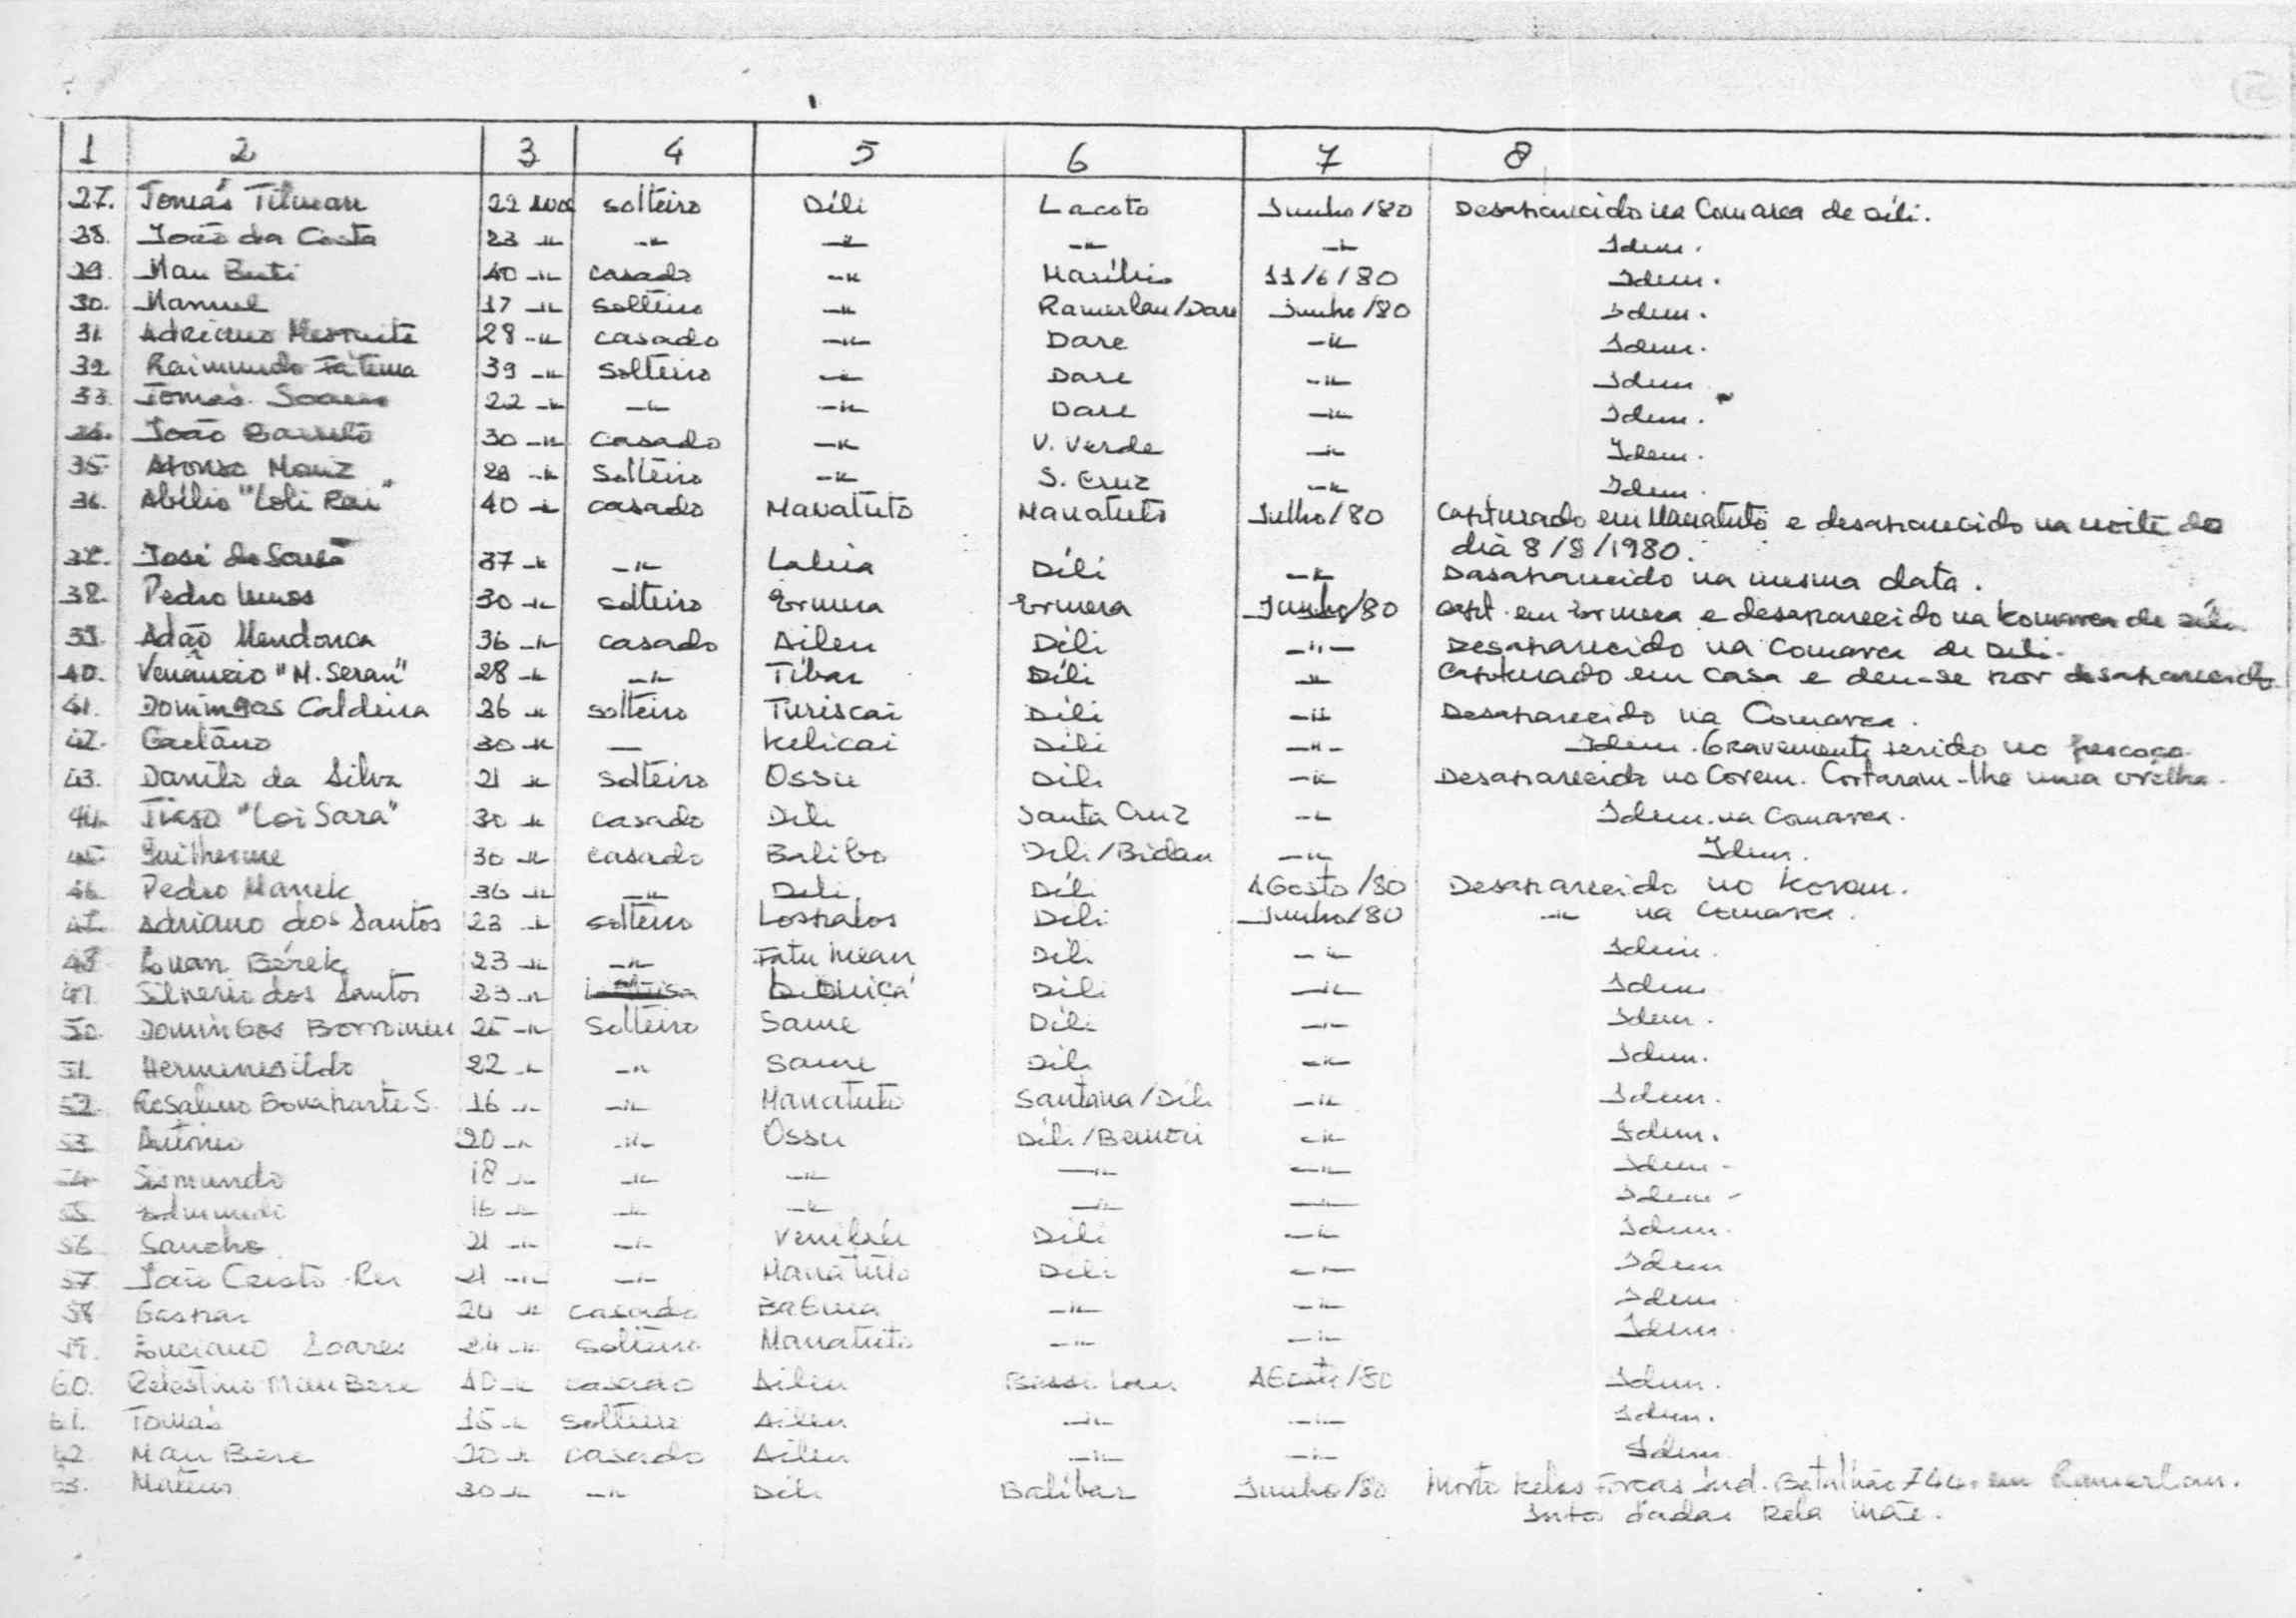 1 2 3 4 5 6 7 8
27. Tomás Tilman 22 anos solteiro Díli Lacoto Junho/80 Desaparecido na Comarca de Díli.
28. João da Costa 23 -"- -"- -"- -"- -"- Idem.
29. Mau Buti 40 -"- casado -"- 11/6/80 Idem.
30. Manuel 17 -"- solteiro -"- Ramerlau/Dare Junho/80 Idem.
31. Adriano Mesquita 28 -"- casado -"- Dare -"- Idem.
32. Raimundo Fátima 39 -"- solteiro -"- Dare -"- Idem
33. Tomás Soares 22 -"- -"- -"- Dare -"- Idem.
34. João Barreto 30 -"- casado -"- V. Verde -"- Idem.
35. Afonso Moniz 29 -"- Solteiro -"- S. Cruz -"- Idem.
36. Abílio "Loli Rai" 40 -"- casado Manatuto Manatuto Julho/80 Capturado em Manatuto e desaparecido na noite do
dia 8/8/1980.
37. José de Sousa 37 -"- -"- Laleia Díli -"- Dasaparecido na mesma data.
38. Pedro Lemos 30 -"- solteiro Ermera Ermera Junho/80 Capt. em Ermera e desaparecido na komarca de Díli
39. Adão Mendonca 36 -"- casado Aileu Díli -"- Desaparecido na Comarca de Díli.
40. Venâncio "M. Seran" 28 -"- -"- Tíbar Díli -"- Capturado em casa e deu-se por desaparecido.
41. Domingos Caldeira 36 -"- solteiro Turiscai Díli -"- Desaparecido na Comarca.
42. Gaetano 30 -"- — Kelicai Díli -"- Idem. Gravemente ferido no pescoço.
43. Danilo da Silva 21 -"- solteiro Ossu Díli -"- Desaparecido no Corem. Cortaram-lhe uma orelha.
44. Tiago "Loi Sara" 30 -"- casado Díli Santa Cruz -"- Idem. na Comarca.
45. Guilherme 30 -"- casado Balibo Díli/Bidau -"- Idem.
46. Pedro Manek 36 -"- -"- Díli Díli Agosto/80 Desaparecido no Korem.
47. Adriano dos Santos 23 -"- solteiro Lospalos Díli Junho/80 -"- na Comarca.
48. Luan Bérek 23 -"- -"- Fatu Mean Díli -"- Idem.
49. Silverio dos Santos 23 -"- Díli -"- Idem
50. Domingos Borromeu 25 -"- Solteiro Same Díli -"- Idem.
51. Hermenegildo 22 -"- -"- Same Díli -"- Idem.
52. Rosalino Bonaparte S. 16 -"- -"- Manatuto Santana/Díli -"- Idem.
53. António 20 -"- -"- Ossu Díli/Bemori -"- Idem.
54. Sismundo 18 -"- -"- -"- -"- -"- Idem.
55. Edmundo 16 -"- -"- -"- -"- -"- Idem.
56. Sancho 21 -"- -"- Venilale Díli -"- Idem.
57. João Cristo Rei 21 -"- -"- Manatuto Díli -"- Idem
58. Gaspar 24 -"- casado Baguia -"- -"- Idem
59. Luciano Soares 24 -"- solteiro Manatuto -"- -"- Idem.
60. Celestino Mau Bere 40 -"- casado Aileu Agosto/80 Idem.
61. Tomás 15 -"- solteiro Aileu -"- -"- Idem.
62. Mau Bere 20 -"- casado Aileu -"- -"- Idem
63. Mateus 30 -"- -"- Díli Balíbar Junho/80 Morto pelas Forcas ind. Batalhão 744 em Ramerlau.
Inf. dadas pela mãe.